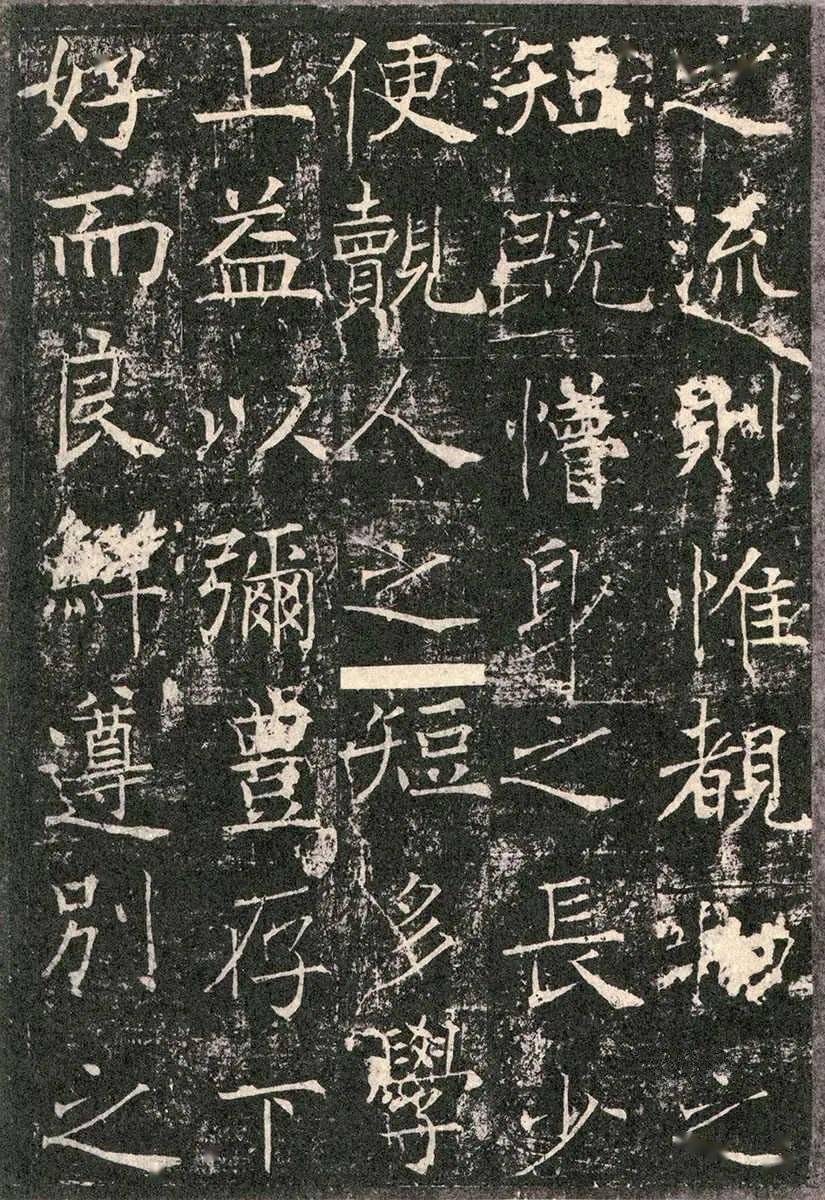 之流則惟覩之
短既懵身之長少
便覿人之短多學
上益以彌豊存下
好而良鮮遵別之